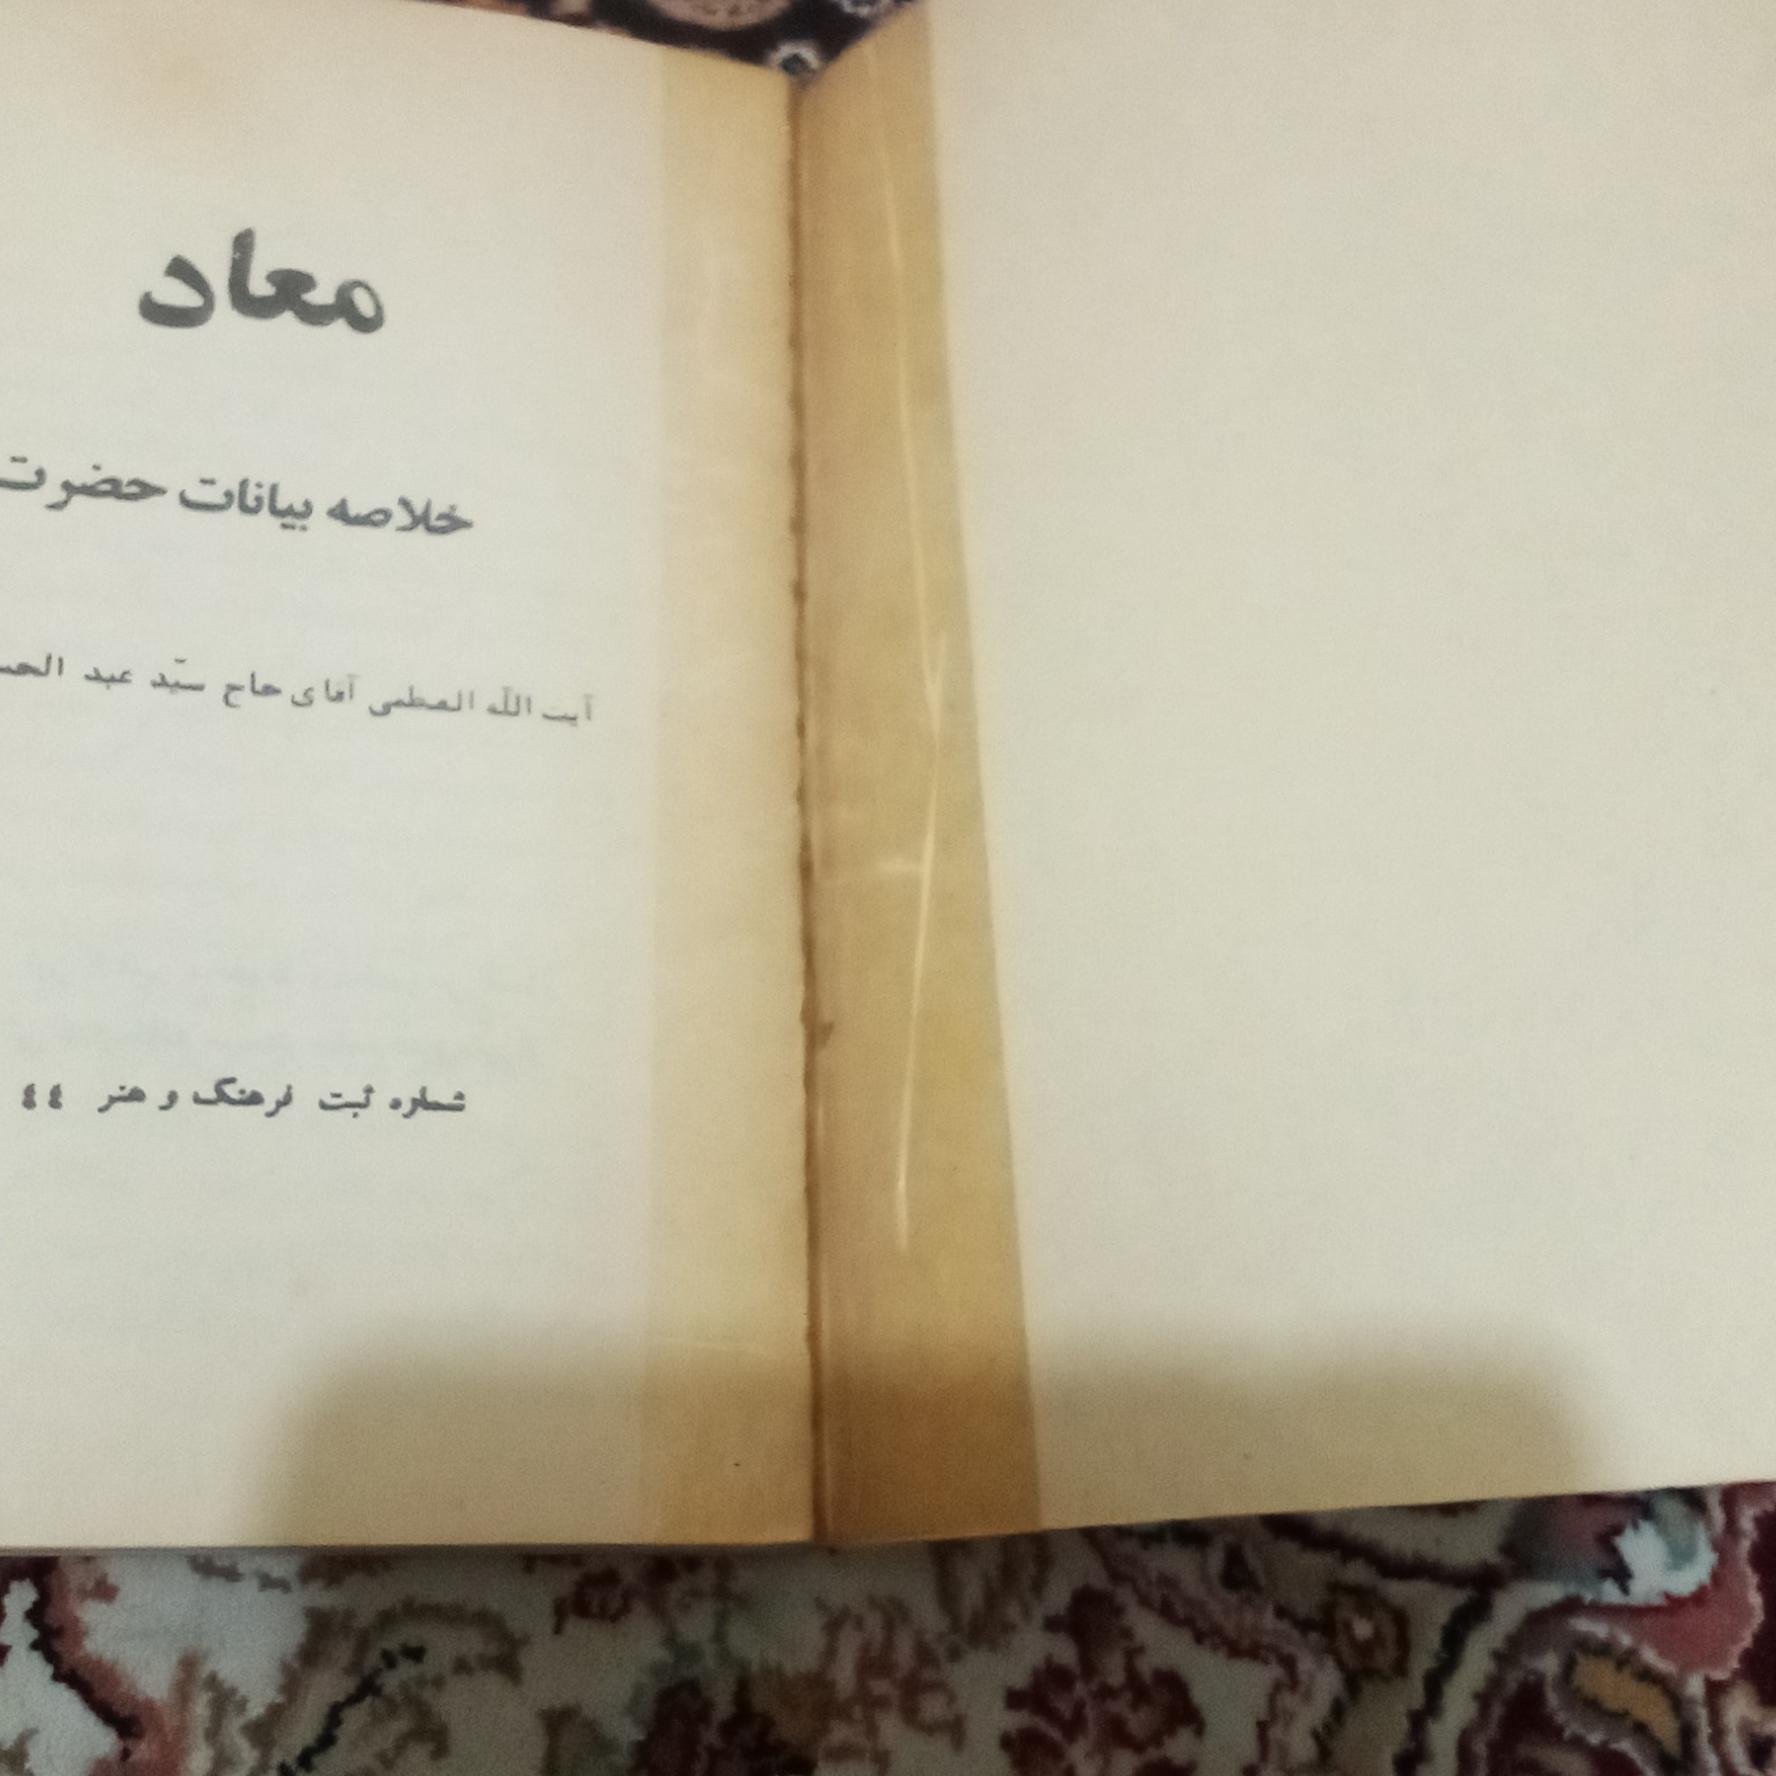 معاد
خلاصه بیانات حضرت
آیت الله العظمی آقای حاج سیّد عبد الحس
شماره ثبت فرهنگ و هنر ٤٤